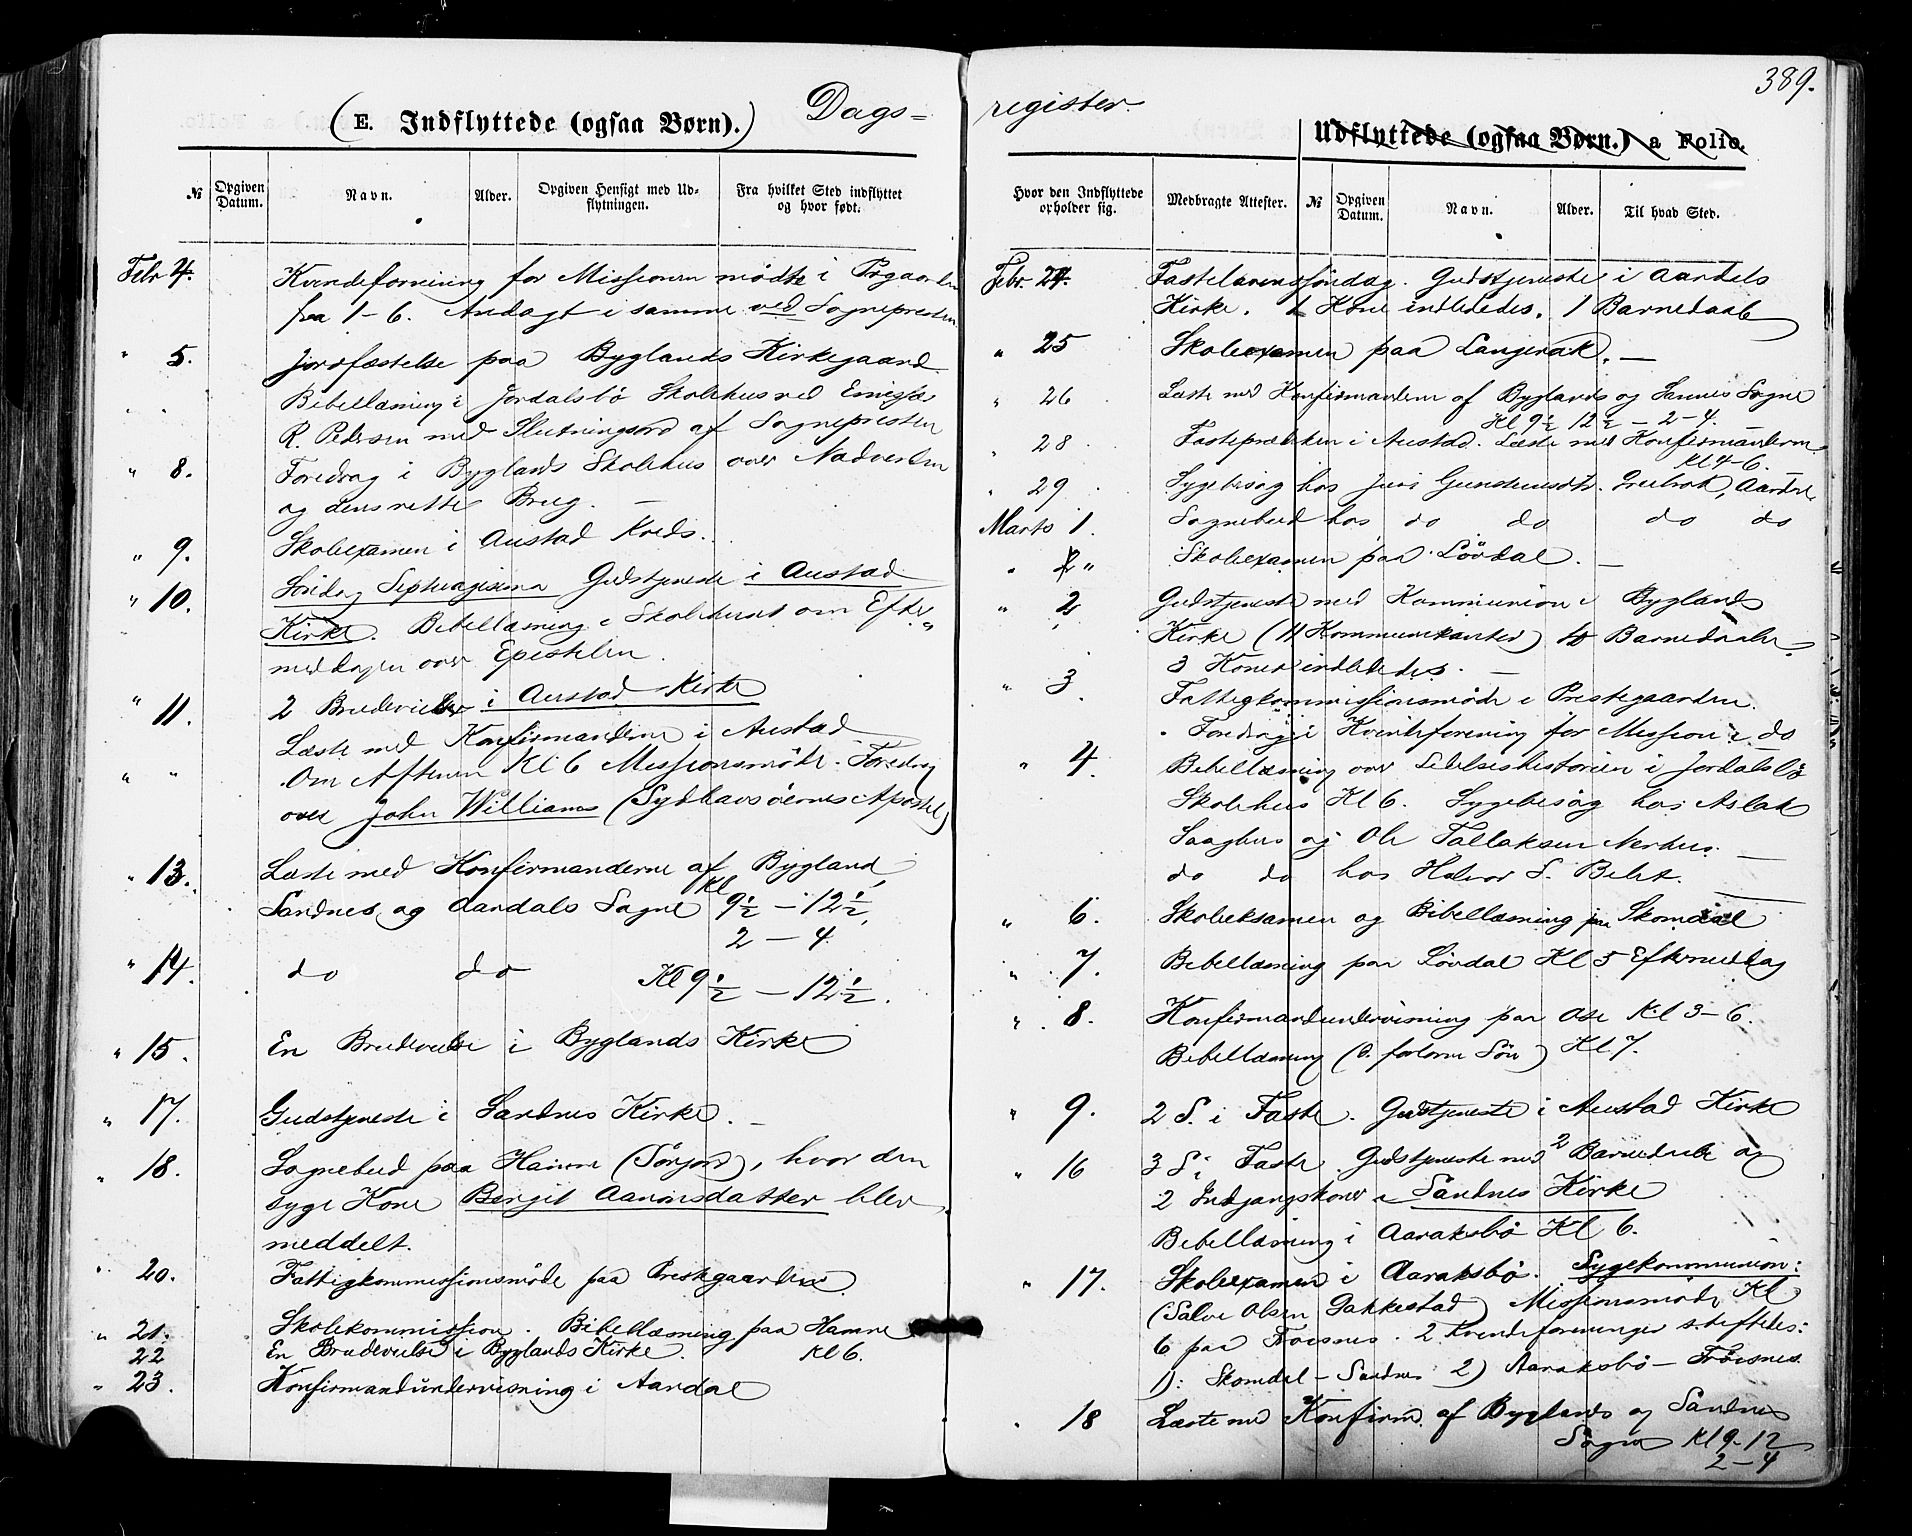 389.
(E. Indflyttede (ogsaa Børn).) Dags=
register.
Udflyttede (ogsaa Børn.) a Folio.
№
Opgiven Datum.
Navn.
Alder.
Opgiven Hensigt med Udflytningen.
Fra hvilket Sted indflyttet og hvor født.
Hvor den Indflyttede opholder sig.
Medbragte Attester.
№
Opgiven Datum.
Navn.
Alder.
Til hvad Sted.
Febr 4. Kvindeforening for Missionen mødte i Prgaarden
fra 1-6. Andagt i samme ved Sognepresten
" 5. Jordfæstelse paa Byglands Kirkegaard
" " Bibellæsning i Jordalsbö Skolehus ved
R. Pedersen med Slutningsord af Sognepresten
" 8. Foredrag i Byglands Skolehus over Nadveren
og dens rette Brug. —
" 9. Skoleexamen i Austad Kreds.
" 10. Søndag Septuagesima Gudstjeneste i Austad
" Kirke. Bibellæsning i Skolehuset om Efter
meddagen over Epistelen.
" 11. 2 Brudevielser i Austad Kirke
Læste med Konfirmanderne i Austad
" " Om Aftenen Kl 6 Missionsmöde. Foredrag
over John Williams (Sydhavsöernes Apostel)
" 13. Læste med Konfirmanderne af Bygland,
Sandnes og Aardals Sogne Kl 9½ – 12½,
2 – 4.
" 14. do do Kl 9½ – 12½.
" 15. En Brudevielse i Byglands Kirke
" 17. Gudstjeneste i Sandnes Kirke. –
" 18. Sognebud paa Hamre (Sörjord), hvor den
syge Kone Bergit Aanonsdatter blev
meddelt.
" 20. Fattigkommissionsmöde paa Prestgaarden
" 21. Skolekommission. Bibellæsning paa Hamre
Kl 6.
22 En Brudevielse i Byglands Kirke.
" 23. Konfirmandundervisning i Aardal
Febr. 24. Fastelavnssöndag. Gudstjeneste i Aardals
Kirke. 1 Kone indlededes. 1 Barnedaab
" 25 Skoleexamen paa Langerak. —
" 26 Læste med Konfirmanderne af Byglands og Sannes Sogne
Kl 9½ 12½ – 2 – 4.
" 28 Fasteprædiken i Austad. Læste med Konfirmanderne
Kl 4-6.
" 29 Sygebesög hos Gundersdtr. Aardal
Marts 1. Sognebud hos do do do do
" 2 " Skoleexamen paa Lövdal. —
" 2 Gudstjeneste med Kommunion i Byglands
Kirke (11 Kommunikanter) Barnedaaber
3 Koner indlededes. —
" 3. Fattigkommissionsmöde i Prestegaarden.
" Foredrag i Kvindeforening for Mission i do
" 4. Bibellæsning over Lidelseshistorien i Jordalsbö
Skolehus Kl 6. Sygebesög hos Aslak
og Ole Tallaksen —
do do hos Halvor S.
" 6. Skoleksamen og Bibellæsning paa Skomdal
" 7. Bibellæsning paa Lövdal Kl 5 Eftermeddag
" 8. Konfirmandundervisning paa Ose Kl 3-6.
Bibellæsning (d. forlorne Sön) Kl 7.
" 9. 2 S. i Faste. Gudstjeneste i Austad Kirke
" 16 3 S i Faste. Gudstjeneste med 2 Barnedaab og
2 Indgangskoner i Sandnes Kirke
Bibellæsning i Aaraksbö Kl 6.
" 17. Skoleexamen i Aaraksbö. Sygekommunion:
(Salve Olsen Gakkestad) Missionsmöde Kl
6 paa Fröisnes. 2 Kvindeforeninger stiftedes:
1): Skomdal – Sandnes 2) Aaraksbö – Fröisnes.
" 18 Læste med Konfirm. af Byglands og Sandnes
Sogne Kl 9-12
2 – 4